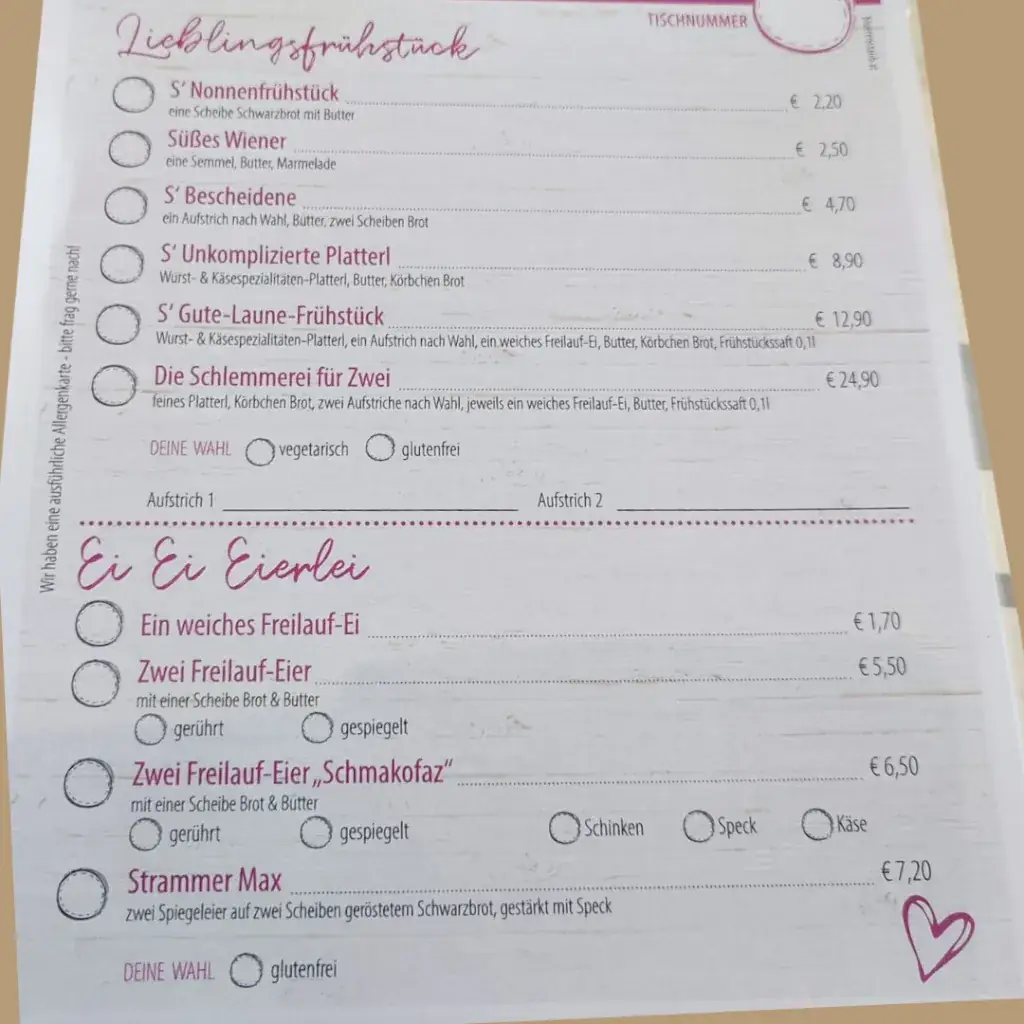 Lieblingsfrühstück
TISCHNUMMER
S' Nonnenfrühstück € 2,20
eine Scheibe Schwarzbrot mit Butter
Süßes Wiener € 2,50
eine Semmel, Butter, Marmelade
S' Bescheidene € 4,70
ein Aufstrich nach Wahl, Butter, zwei Scheiben Brot
S' Unkomplizierte Platterl € 8,90
Wurst- & Käsespezialitäten-Platterl, Butter, Körbchen Brot
S' Gute-Laune-Frühstück € 12,90
Wurst- & Käsespezialitäten-Platterl, ein Aufstrich nach Wahl, ein weiches Freilauf-Ei, Butter, Körbchen Brot, Frühstückssaft 0,1l
Die Schlemmerei für Zwei € 24,90
feines Platterl, Körbchen Brot, zwei Aufstriche nach Wahl, jeweils ein weiches Freilauf-Ei, Butter, Frühstückssaft 0,1l
DEINE WAHL vegetarisch glutenfrei
Aufstrich 1 Aufstrich 2
Wir haben eine ausführliche Allergenkarte - bitte frag gerne nach!
Ei Ei Eierlei
Ein weiches Freilauf-Ei € 1,70
Zwei Freilauf-Eier € 5,50
mit einer Scheibe Brot & Butter
gerührt gespiegelt
Zwei Freilauf-Eier „Schmakofaz“ € 6,50
mit einer Scheibe Brot & Butter
gerührt gespiegelt Schinken Speck Käse
Strammer Max € 7,20
zwei Spiegeleier auf zwei Scheiben geröstetem Schwarzbrot, gestärkt mit Speck
DEINE WAHL glutenfrei